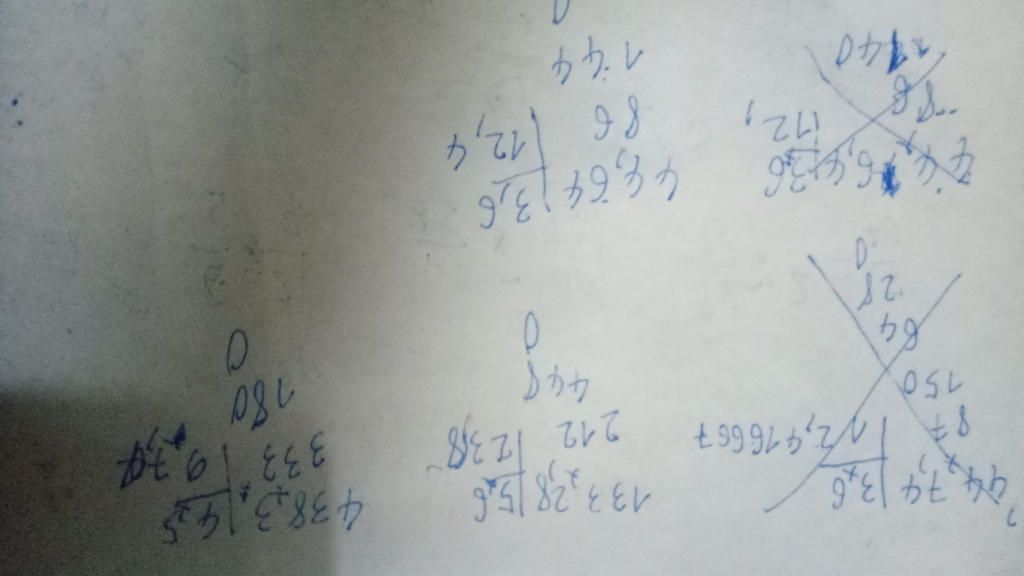 44,74 | 3,6
87 12,416667
150
64
28
0
133,28 | 5,6
212 | 23,8
448
0
438,3 | 4,5
333 | 97,4
180
0
44,64 | 3,6
-86 12,
140
44,64 | 3,6
86 | 12,4
144
0